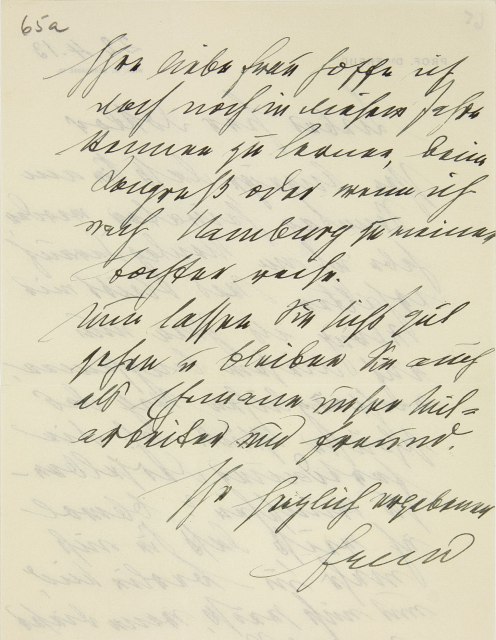 65a
Ihre liebe Frau hoffe ich
doch noch in diesem Jahre
kennen zu lernen, beim
Kongreß oder wenn ich
nach Hamburg zu meiner
Tochter reise.
Nun lassen Sie sichs gut
gehen u bleiben Sie auch
als Ehemann unser Mit=
arbeiter und Freund.
Ihr herzlich ergebener
Freud